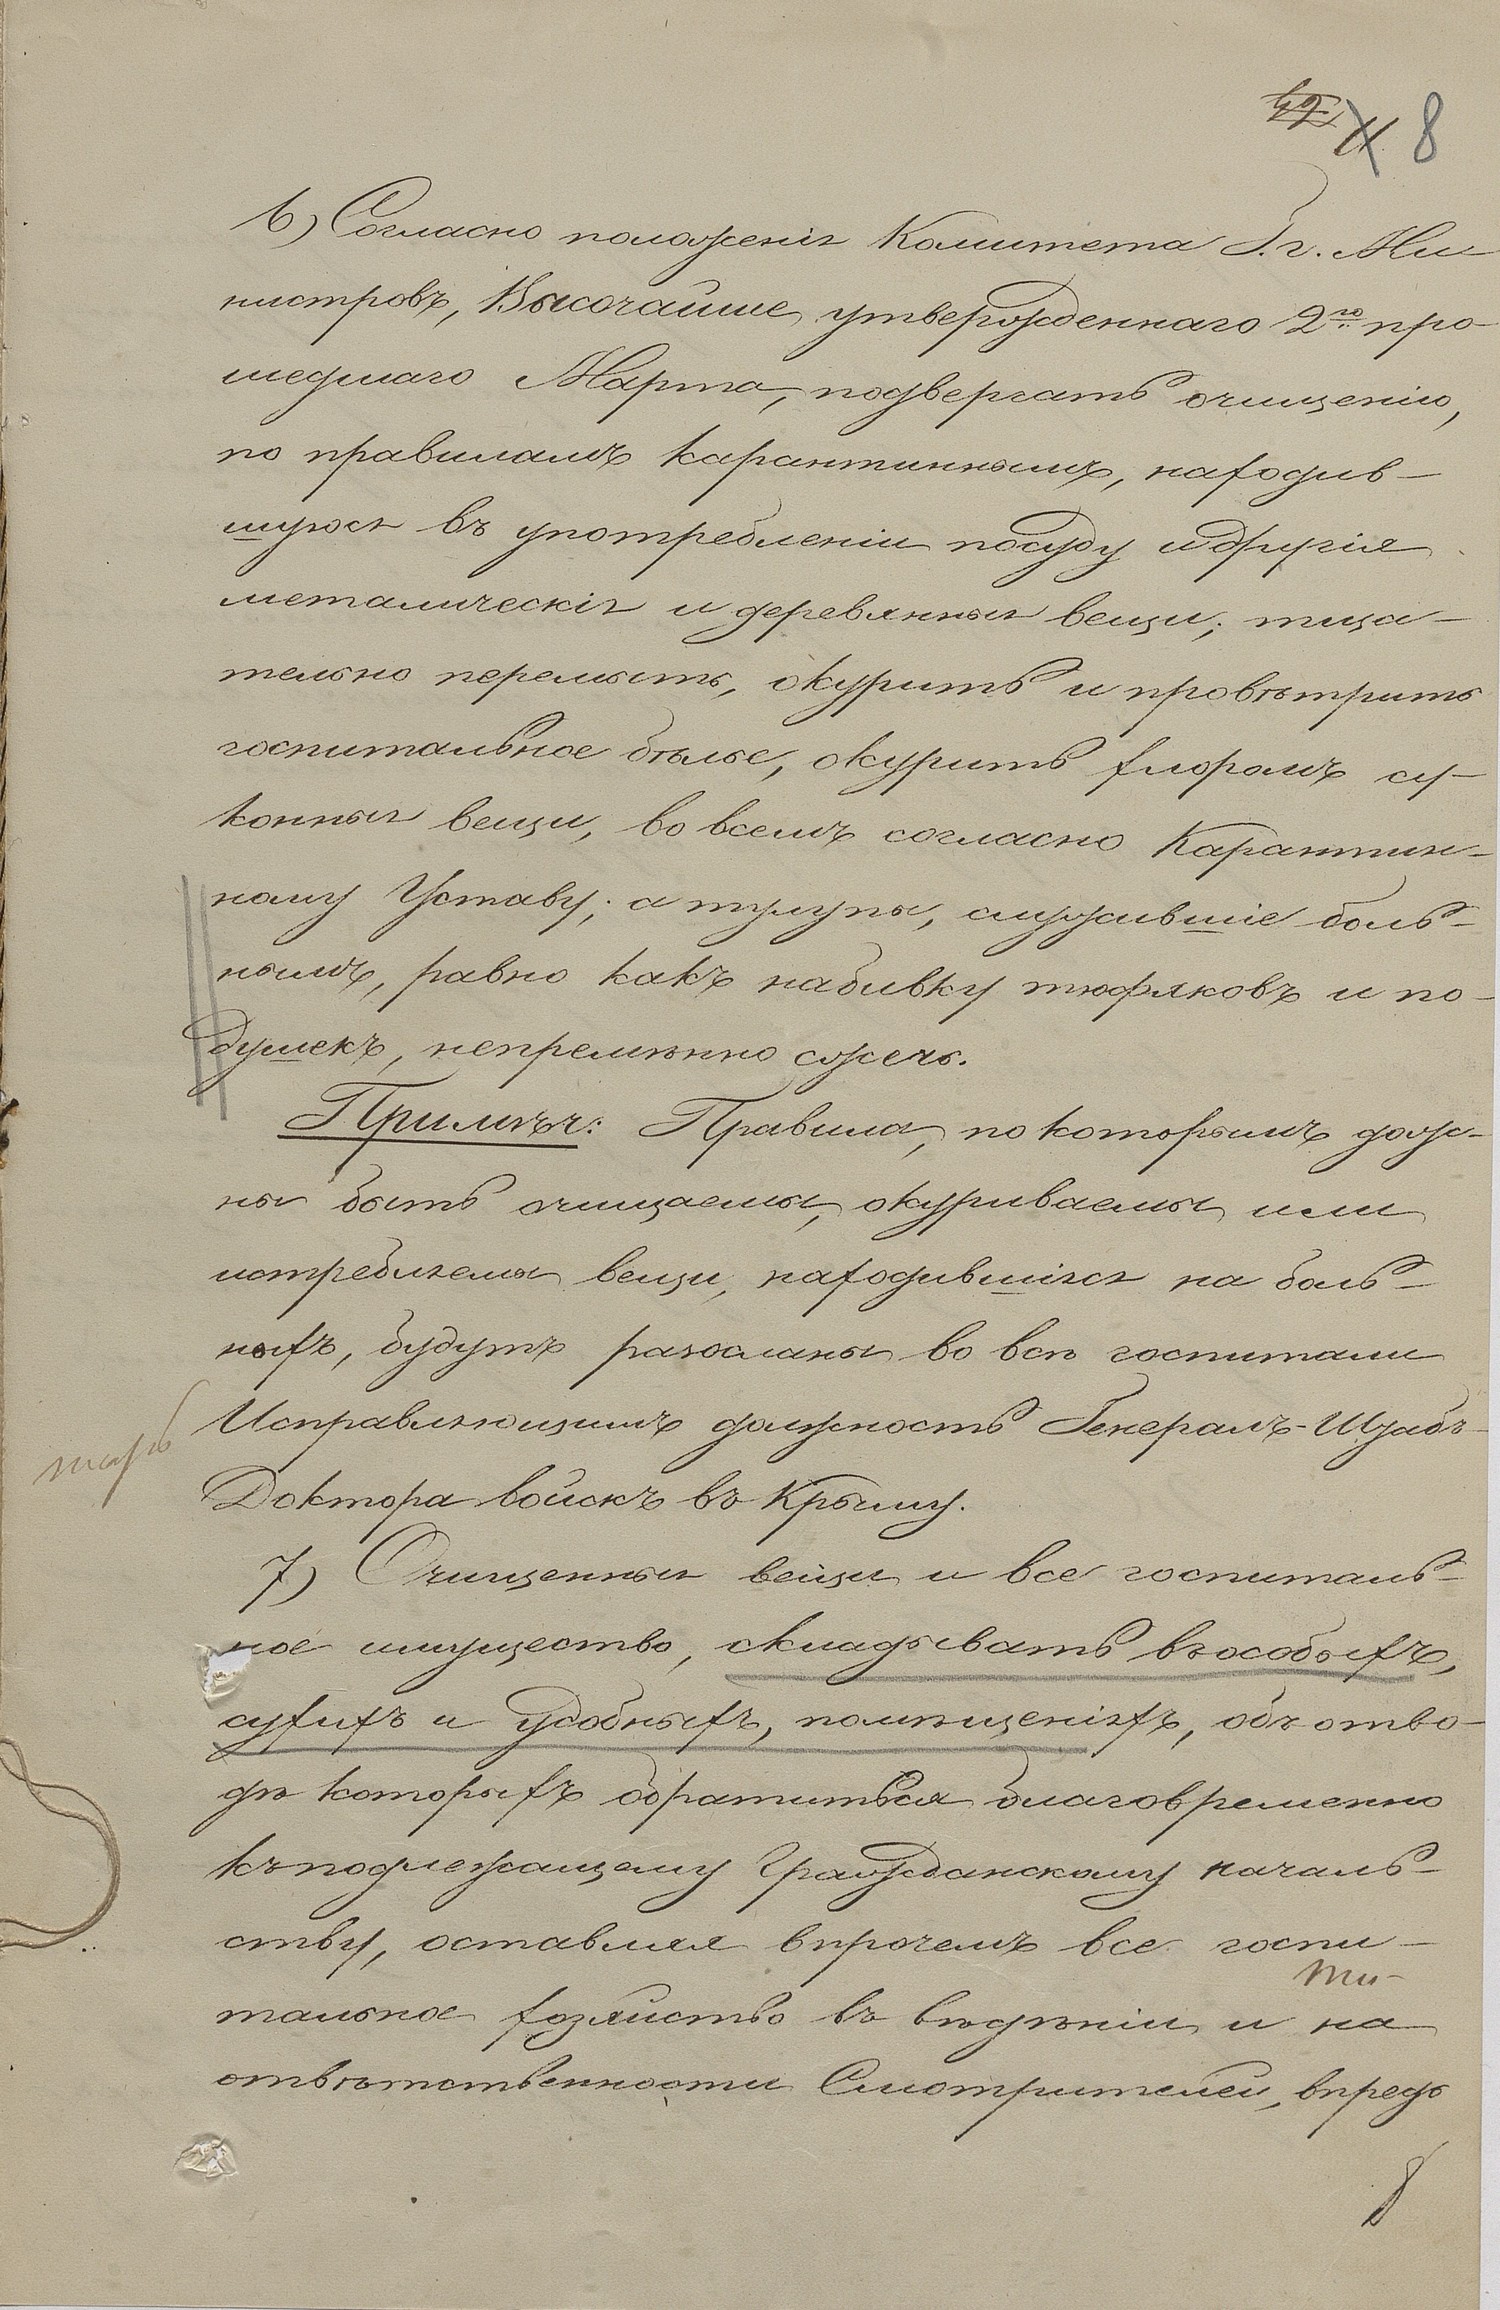 8
6) Согласно положенія Комитета Г.г. Ми-
нистровъ, Высочайше утвержденнаго 2го про-
шедшаго Марта, подвергать очищенію,
по правиламъ карантиннымъ, находив-
шуюся въ употребленіи посуду и другія
металическія и деревянныя вещи; тща-
тельно перемыть, окурить и провѣтрить
госпитальное бѣлье, окурить хлоромъ су-
конныя вещи, во всемъ согласно Карантин-
ному Уставу; а тулупы, служившіе боль-
нымъ, равно какъ набивку тюфяковъ и по-
душекъ, непремѣнно сжечь.
Примѣч: Правила, по которымъ долж-
ны быть очищаемы, окуриваемы или
истребляемы вещи, находившіяся на боль-
ныхъ, будутъ разосланы во всѣ госпитали
Исправляющимъ должность Генералъ-Штабъ-
Доктора войскъ въ Крыму.
7) Очищенныя вещи и все госпиталь-
ное имущество, складывать въ особыхъ,
сухихъ и удобныхъ, помѣщеніяхъ, объ отво-
дѣ которыхъ обратиться благовременно
къ подлежащему Гражданскому началь-
ству, оставляя впрочемъ все госпи-
тальное хозяйство въ вѣдѣніи и на
отвѣтственности Смотрителей, впредь